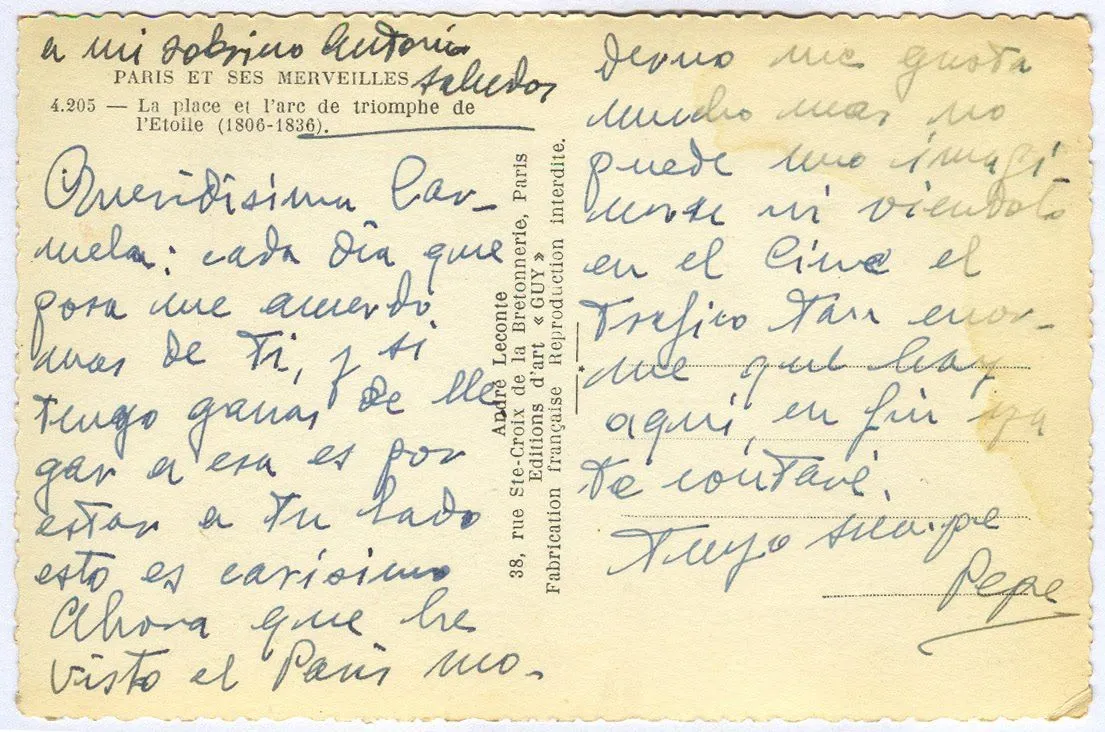 a mi sobrino Antonio
saludos
PARIS ET SES MERVEILLES
4.205 — La place et l'arc de triomphe de
l'Etoile (1806-1836).
Queridisima Car-
mela: cada día que
pasa me acuerdo
mas de Ti, y si
tengo ganas de lle
gar a esa es por
estar a tu lado
esto es carísimo
Ahora que he
visto el París mo-
derno me gusta
mucho mas no
puede uno imagi
narse ni viendolo
en el Cine el
Trafico Tan enor-
me que hay
aqui, en fin ya
te contaré.
Tuyo siempre
Pepe
André Leconte
38, rue Ste-Croix de la Bretonnerie, Paris
Editions d'art « GUY »
Fabrication française Reproduction interdite.